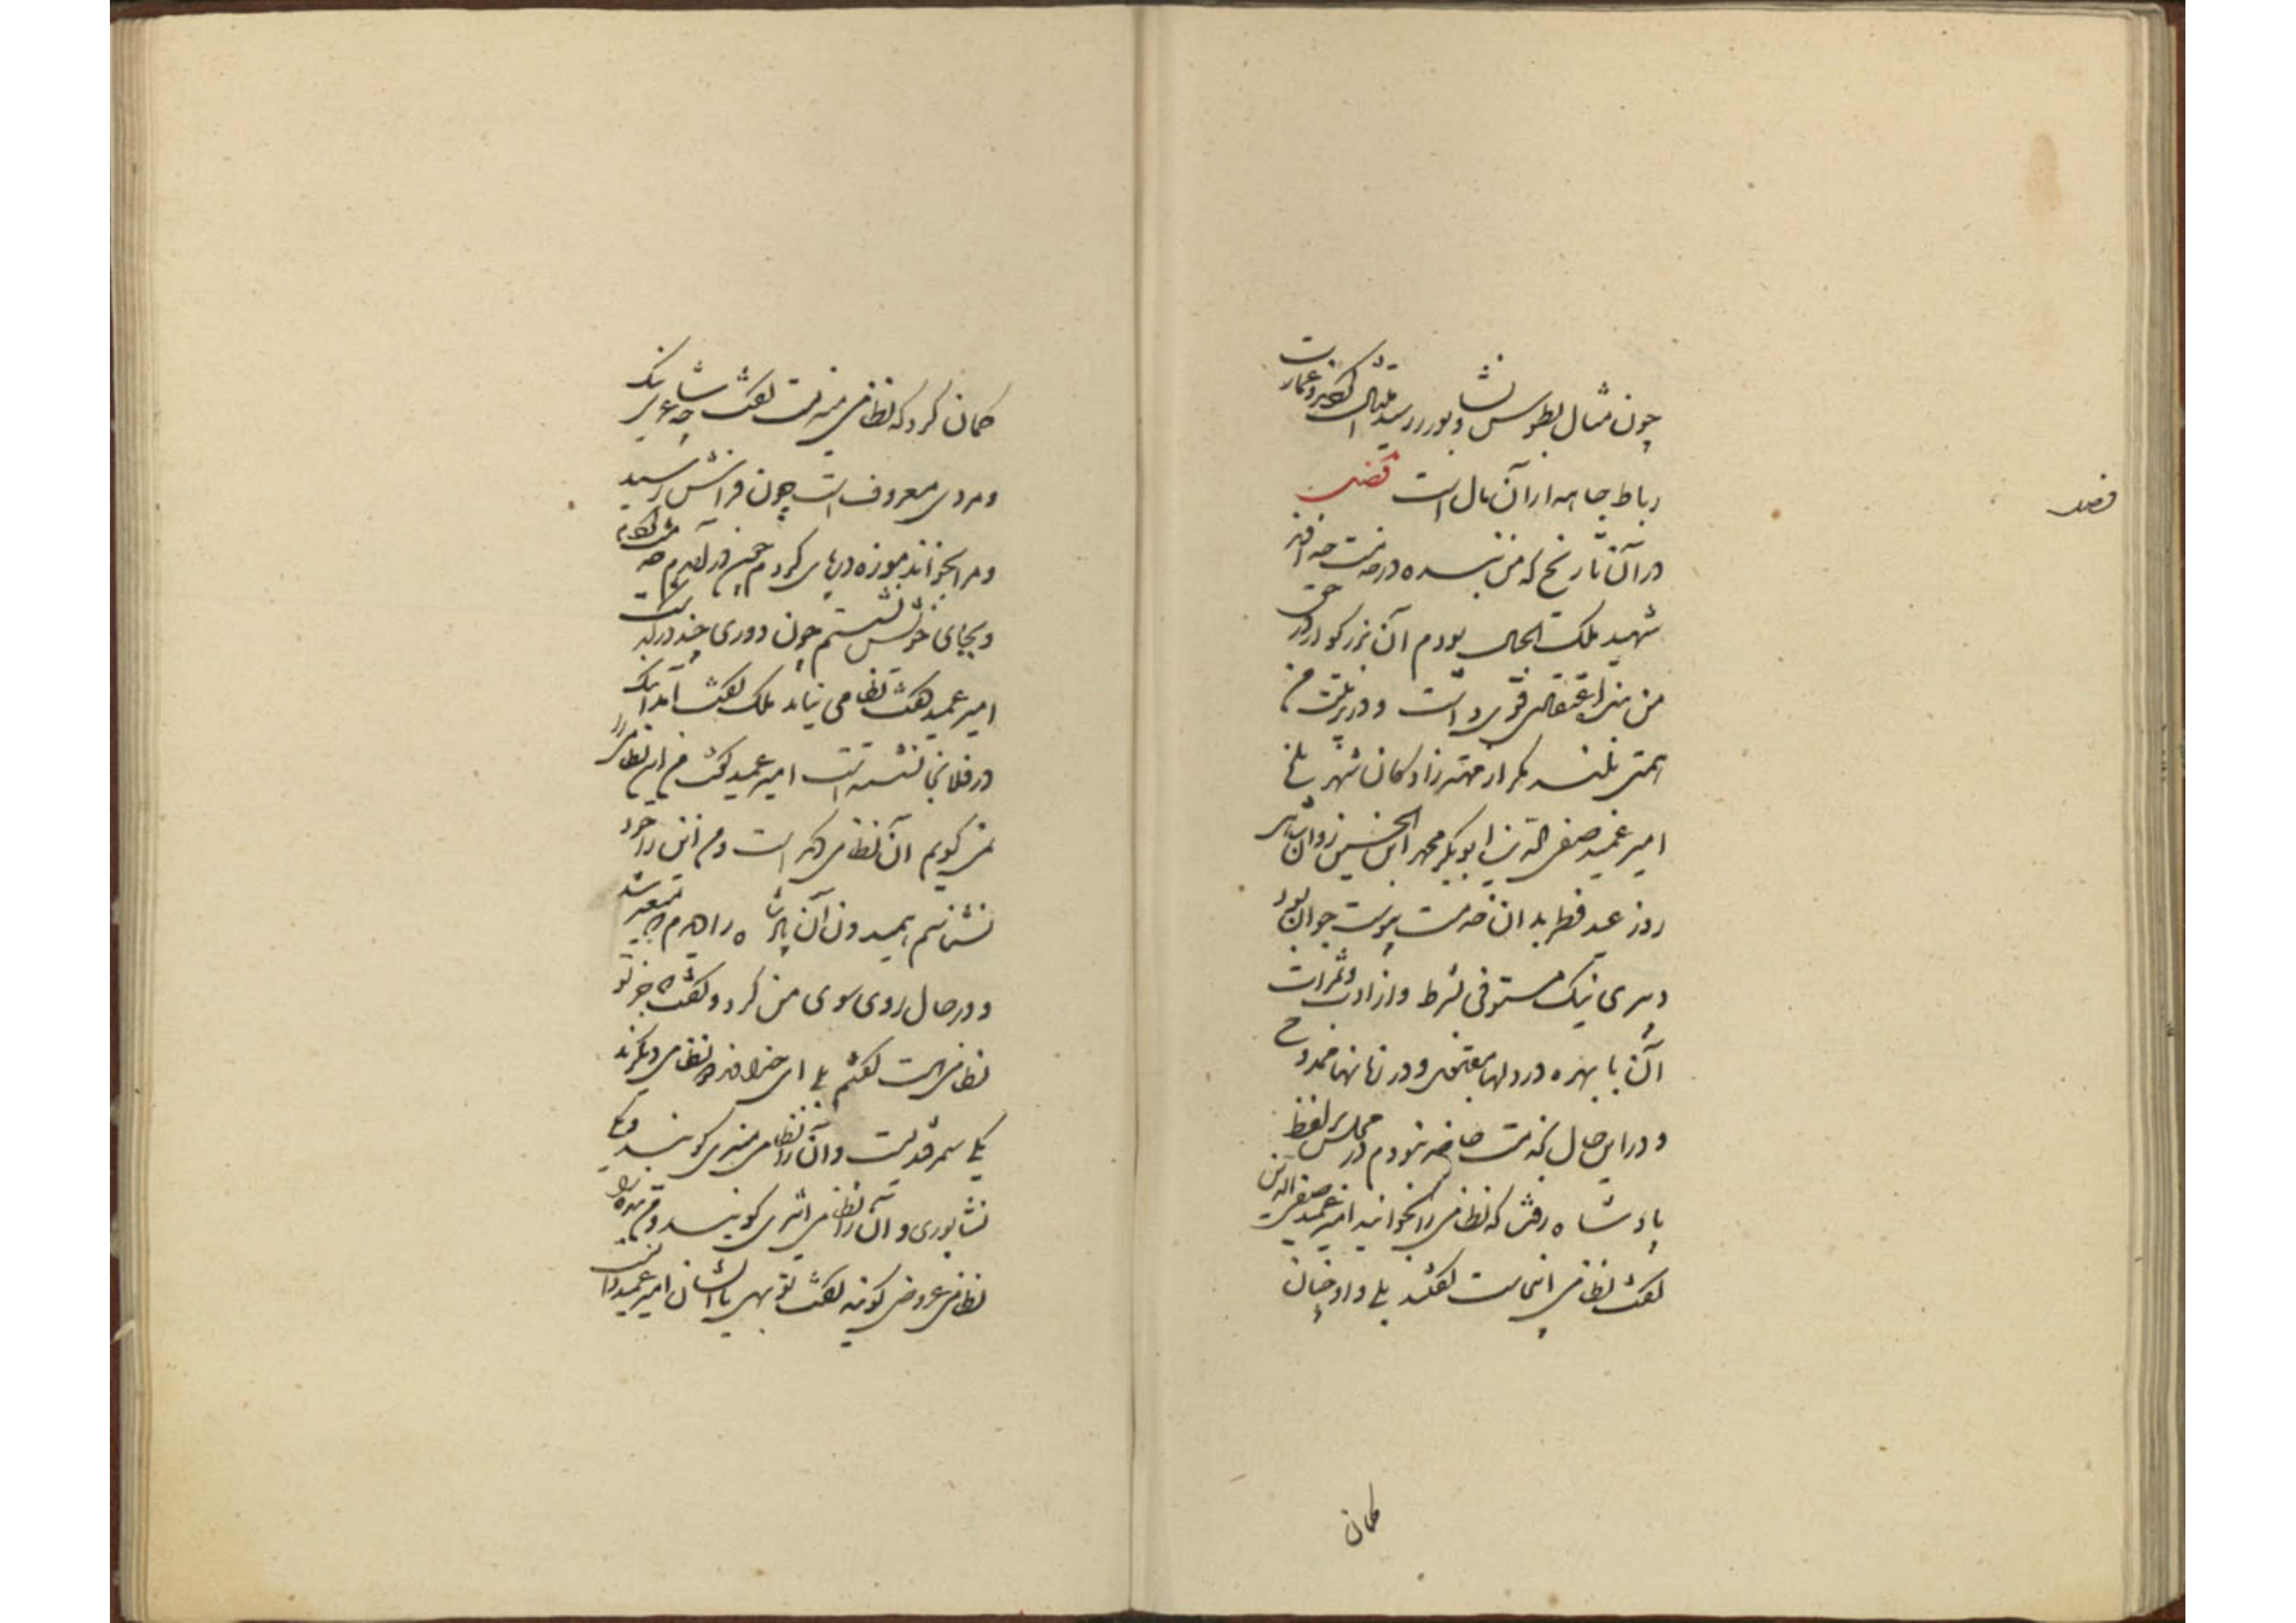 چون مثال بطوس و نشابور رسید امتثال کردند و عمارت
رباط چاهه از آن مال است فصل
در آن تاریخ که من بنده در خدمت خداوند
شهید ملک الجبال بودم آن بزرگوار در حق
من بنده اعتقادی قوی داشت و در تربیت من
همتی بلند مگر از مهترزادگان شهر بلخ
امیر عمید صفی الدین ابوبکر محمد ابن الحسین روانشاهی
روز عید فطر بدان خدمت پیوست جوان بود
دبیری نیک مستوفی شرط و از ادب و ثمرات
آن با بهره در دلها مقبول و در زبانها ممدوح
و در این حال بخدمت حاضر نبودم در مجلس لفظ
پادشاه رفت که نظامی را بخوانید امیر عمید صفی الدین
گفت نظامی اینجاست گفتند بلی و او چنان
گمان
فصل
گمان کرد که نظامی منیریست گفت شاعری نیک
و مردی معروف است چون فراش رسید
و مرا بخواند موزه در پای کردم چون در آمدم خدمت کردم
و بجای خویش نشستم چون دوری چند در گذشت
امیر عمید گفت نظامی نیامد ملک گفت آمد اینک
در فلانجا نشسته است امیر عمید گفت من این نظامی را
نمی گویم آن نظامی دیگر است و من این را خود
نشناسم همیدون آن پادشاه را دیدم متغیر شد
و در حال روی سوی من کرد و گفت جز تو
نظامی هست گفتم بلی ای خداوند دو نظامی دیگرند
یکی سمرقندیست و آن را نظامی منیری گویند و یکی
نشابوری و آن را نظامی اثیری گویند و من بنده را
نظامی عروضی گویند گفت تو بهی یا ایشان امیر عمید دانست